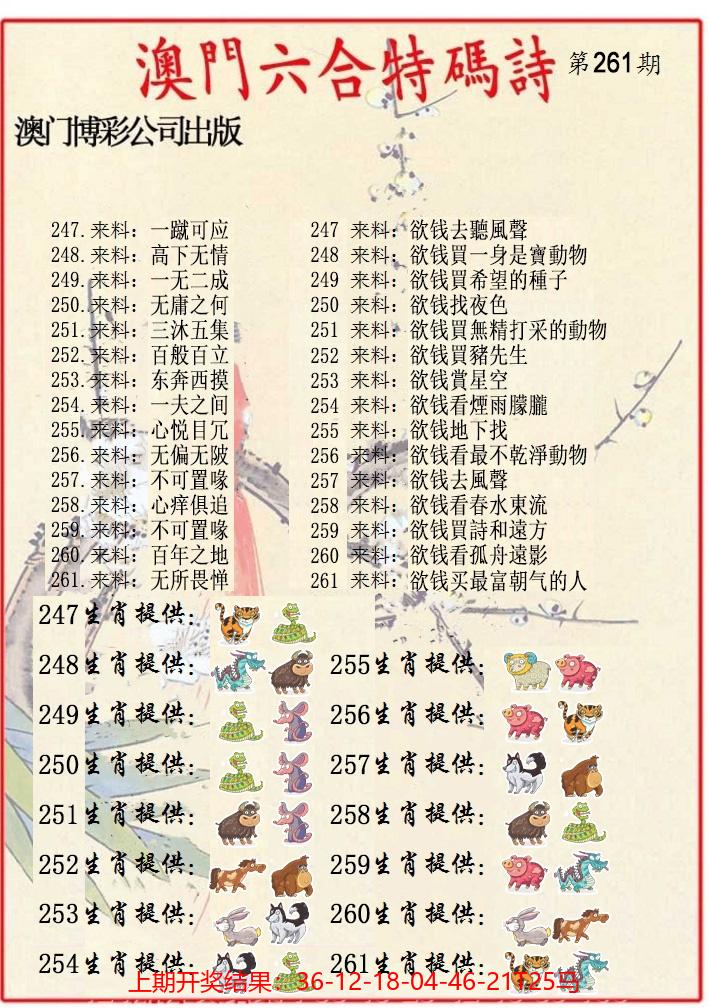 澳門六合特碼詩 第261期
澳门博彩公司出版
247.来料：一蹴可应
248.来料：高下无情
249.来料：一无二成
250.来料：无庸之何
251.来料：三沐五集
252.来料：百般百立
253.来料：东奔西摸
254.来料：一夫之间
255.来料：心悦目冗
256.来料：无偏无陂
257.来料：不可置喙
258.来料：心痒俱追
259.来料：不可置喙
260.来料：百年之地
261.来料：无所畏惮
247 来料：欲钱去聽風聲
248 来料：欲钱買一身是寶動物
249 来料：欲钱買希望的種子
250 来料：欲钱找夜色
251 来料：欲钱買無精打采的動物
252 来料：欲钱買豬先生
253 来料：欲钱賞星空
254 来料：欲钱看煙雨朦朧
255 来料：欲钱地下找
256 来料：欲钱看最不乾淨動物
257 来料：欲钱去風聲
258 来料：欲钱看春水東流
259 来料：欲钱買詩和遠方
260 来料：欲钱看孤舟遠影
261 来料：欲钱买最富朝气的人
247生肖提供：
248生肖提供：
249生肖提供：
250生肖提供：
251生肖提供：
252生肖提供：
253生肖提供：
254生肖提供：
255生肖提供：
256生肖提供：
257生肖提供：
258生肖提供：
259生肖提供：
260生肖提供：
261生肖提供：
上期开奖结果：36-12-18-04-46-21T25马